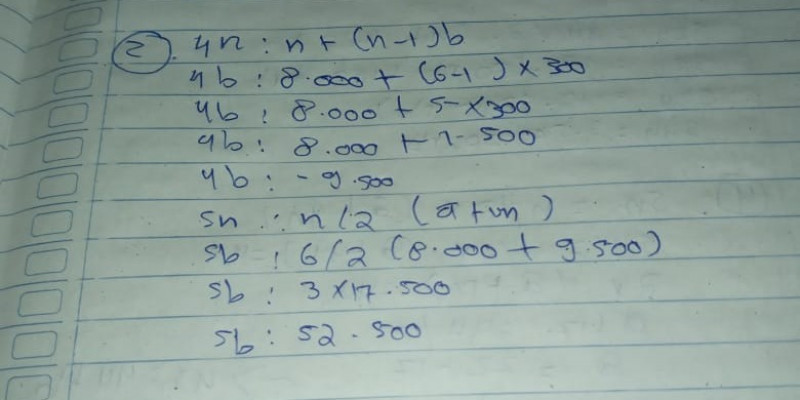 2. Un : n + (n-1)b
U6 : 8.000 + (6-1) x 300
U6 : 8.000 + 5 x 300
U6 : 8.000 + 1.500
U6 : - 9.500
Sn : n/2 (a + un)
S6 : 6/2 (8.000 + 9.500)
S6 : 3 x 17.500
S6 : 52.500